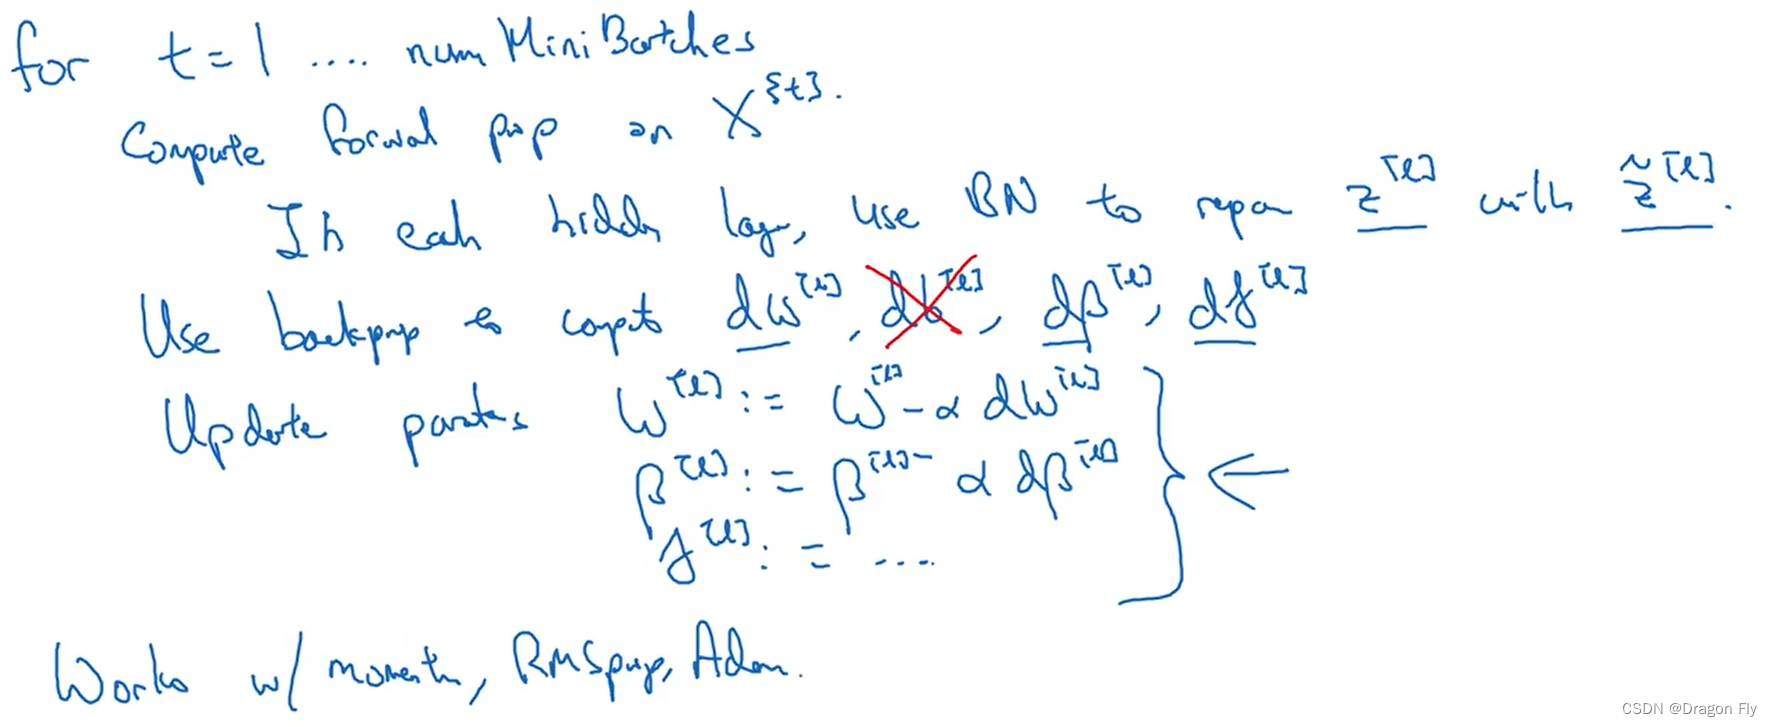 for t = 1 .... num Mini Batches
Compute forwal prop on X^{t}.
In eah hidden lay, use BN to repa z^[l] with z̃^[l].
Use backprop to comput dw^[l], db^[l], dβ^[l], dγ^[l]
Update parates W^[l] := W^[l] - α dw^[l]
β^[l] := β^[l] - α dβ^[l]
γ^[l] := ....
Works w/ momentu, RMSprop, Adam.
CSDN @Dragon Fly